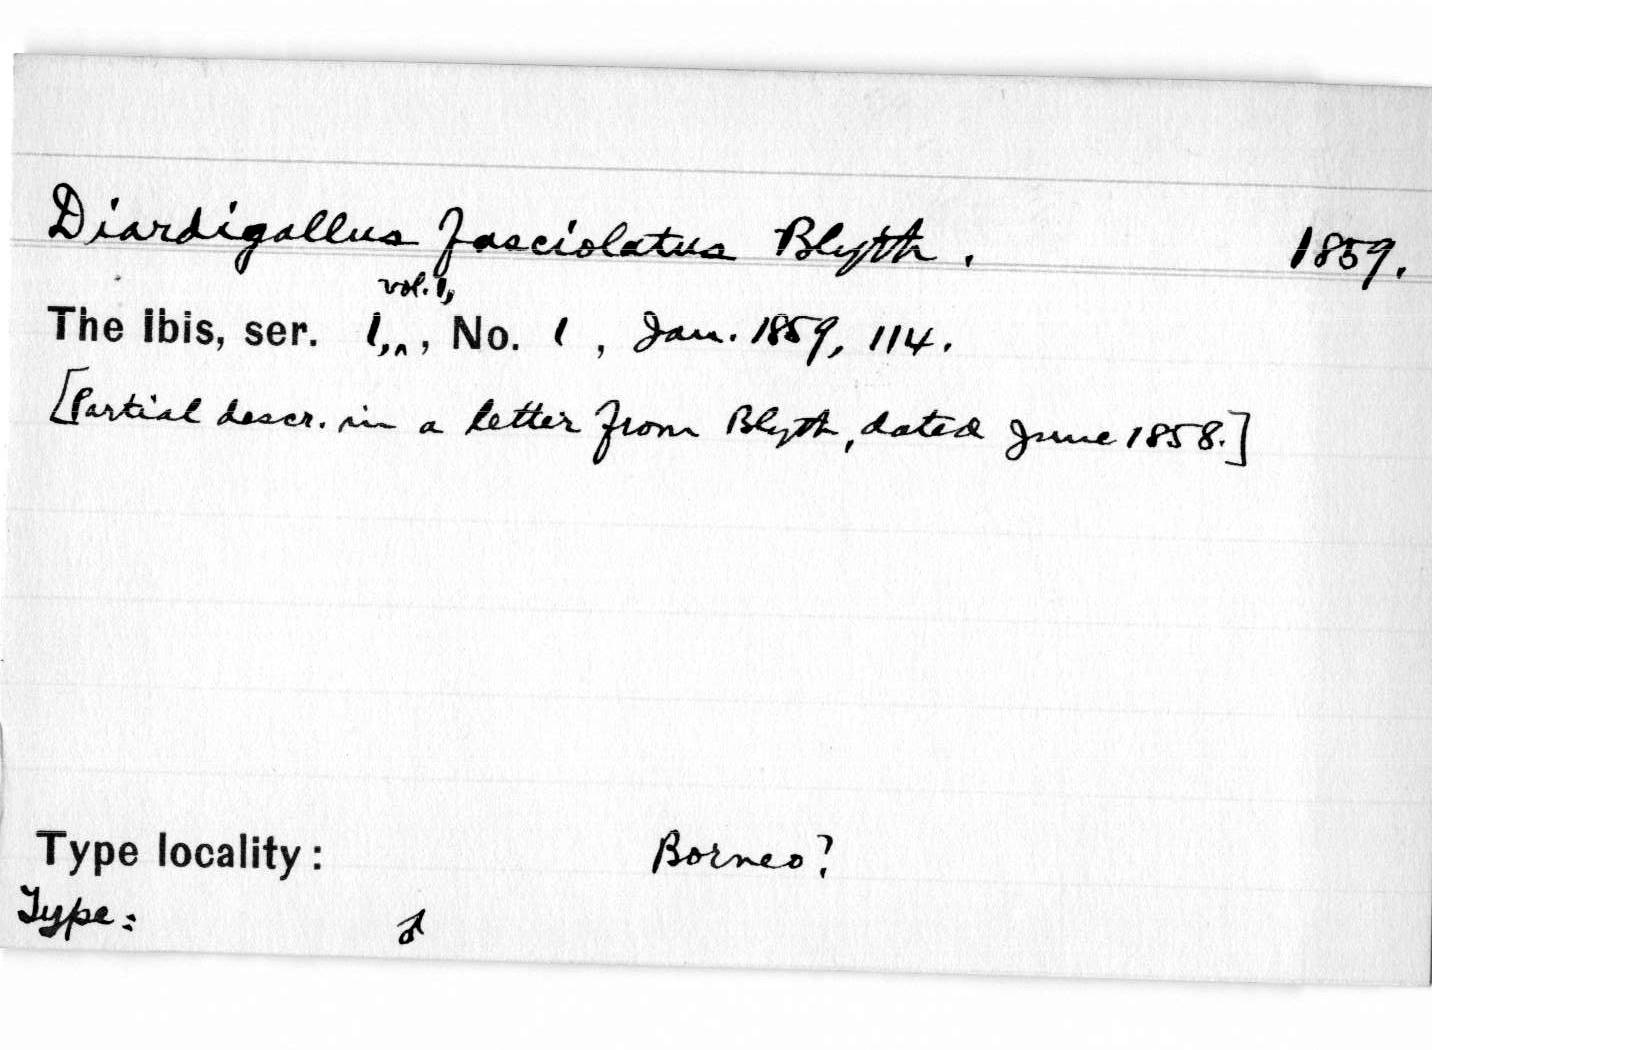 Diardigallus fasciolatus Blyth. 1859.
The Ibis, ser. 1, vol. 1, , No. 1 , Jan. 1859, 114.
[Partial descr. in a letter from Blyth, dated June 1858.]
Type locality: Borneo?
Type: ♂